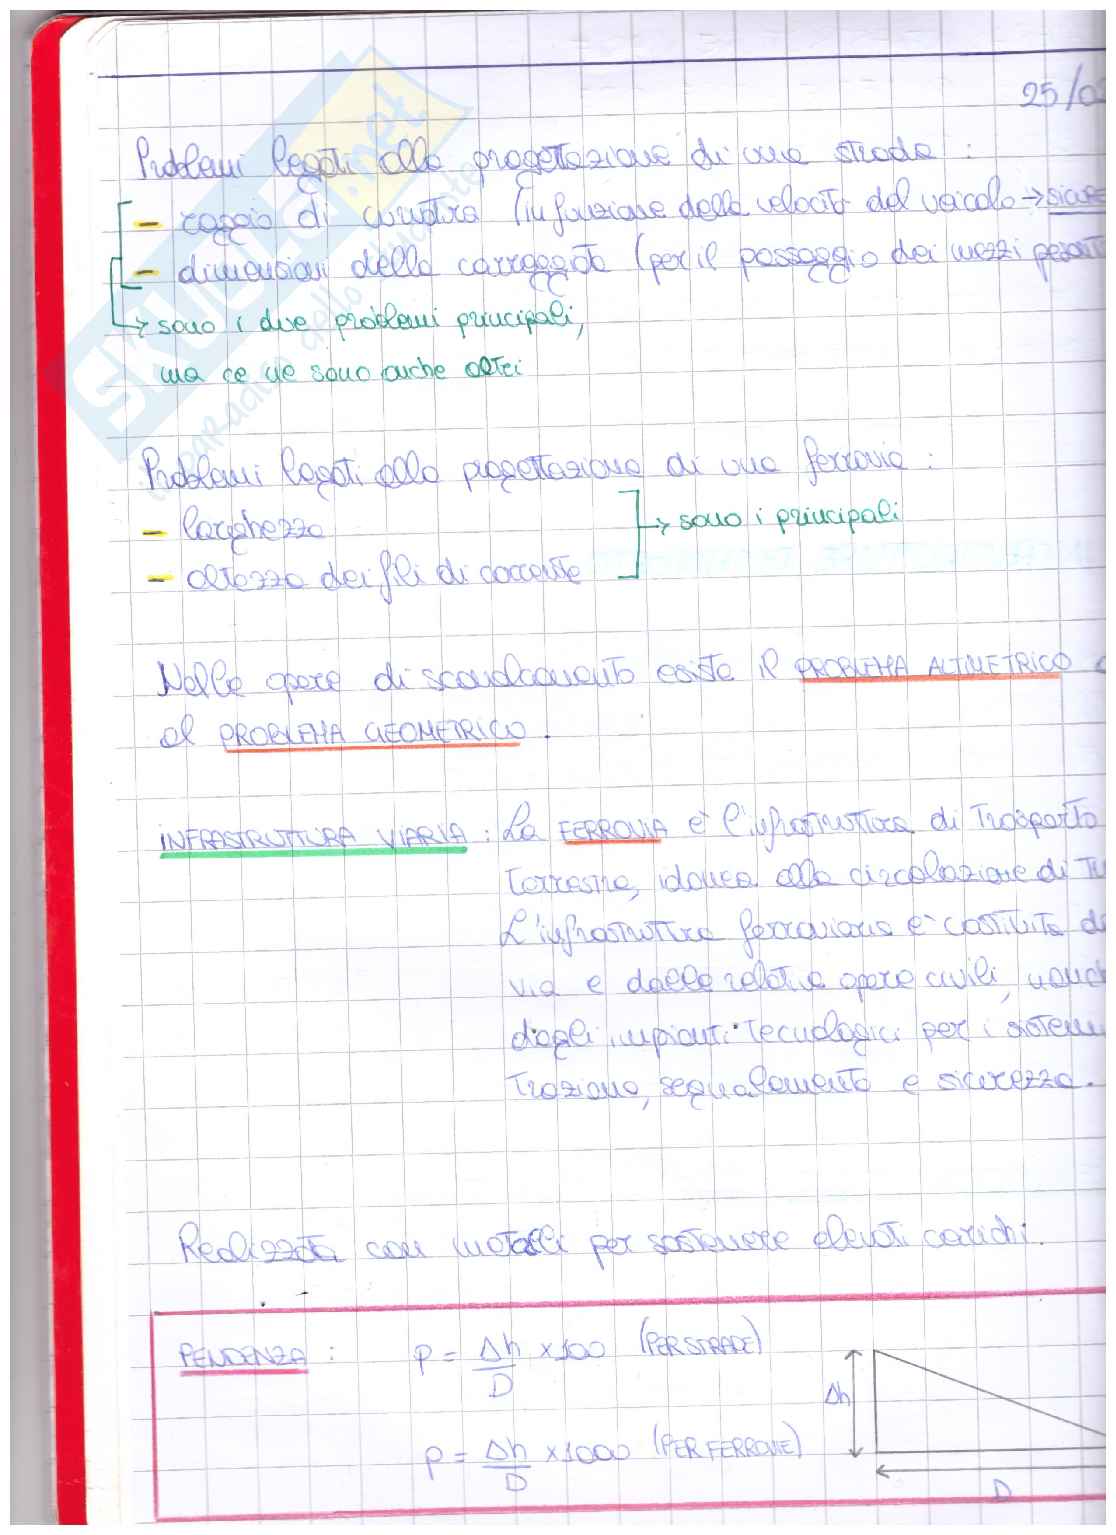 25/0
Problemi legati alla progettazione di una strada :
- raggio di curvatura (in funzione della velocità del veicolo →
- dimensioni della carreggiata (per il passaggio dei mezzi
→ sono i due problemi principali,
ma ce ne sono anche altri
Problemi legati alla progettazione di una ferrovia :
- larghezza
- altezza dei fili di corrente
→ sono i principali
Nelle opere di scavalcamento esiste il PROBLEMA ALTIMETRICO
al PROBLEMA GEOMETRICO.
INFRASTRUTTURA VIARIA : La FERROVIA è l'infrastruttura di trasporto
terrestre, idonea alla circolazione di
L'infrastruttura ferroviaria è costituita
via e dalle relative opere civili,
dagli impianti tecnologici per i
trazione, segnalamento e sicurezza.
Realizzata con metalli per sostenere elevati carichi.
PENDENZA : p = Δh/D ×100 (PER STRADE)
Δh
p = Δh/D ×1000 (PER FERROVIE)
D
SKUOLA.net